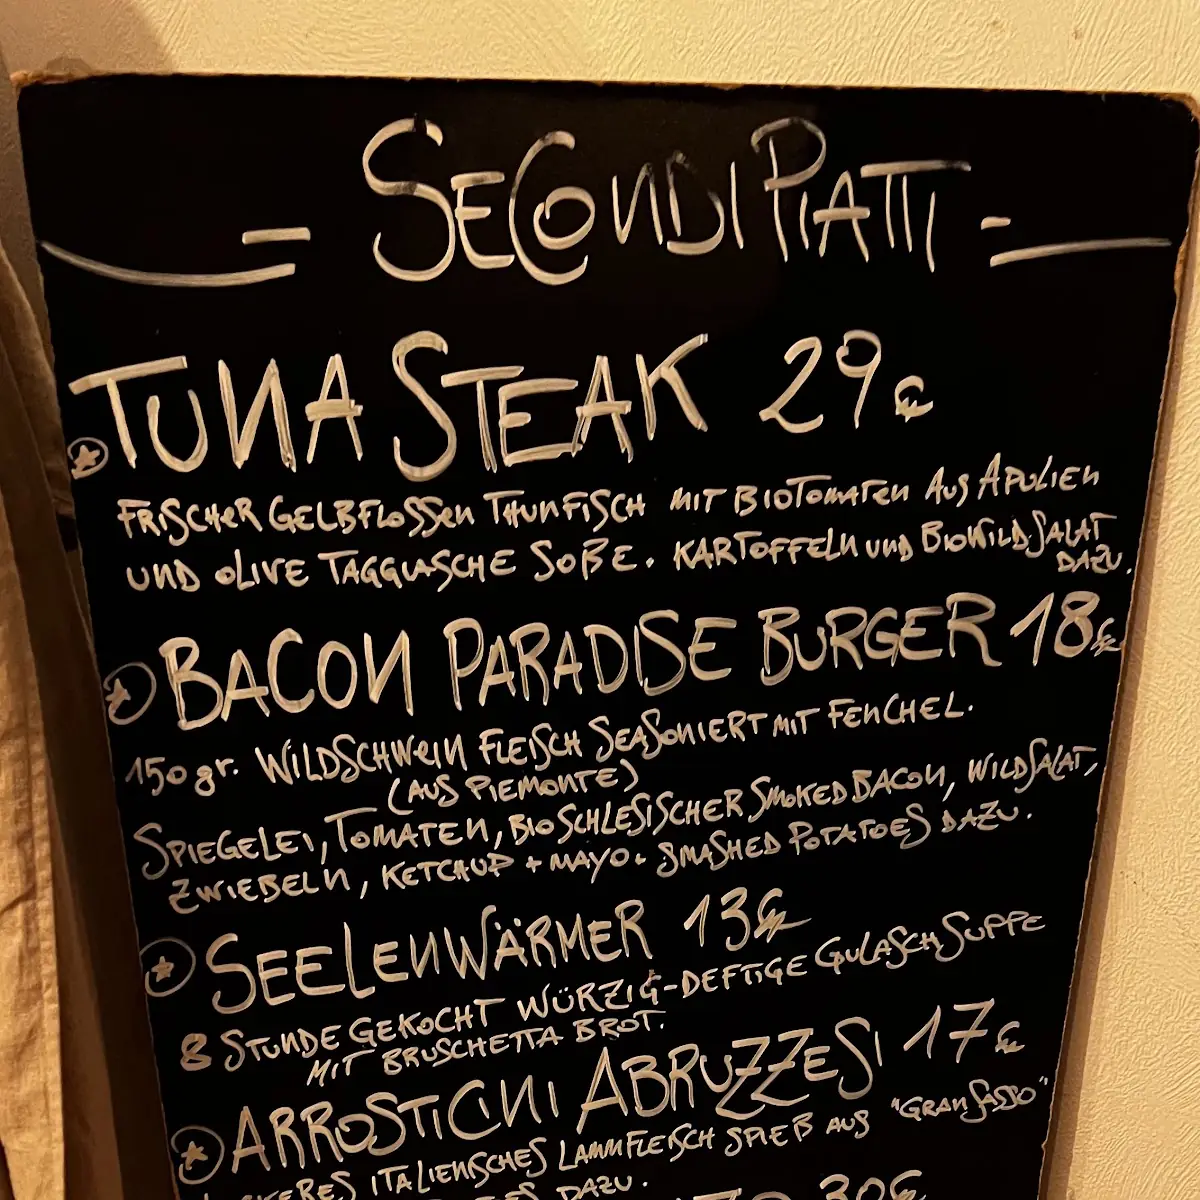 - SECONDI PIATTI -
TUNA STEAK 29€
FRISCHER GELBFLOSSEN THUNFISCH MIT BIOTOMATEN AUS APULIEN
UND OLIVE TAGGIASCHE SOßE. KARTOFFELN UND BIOWILDSALAT
DAZU.
BACON PARADISE BURGER 18€
150 gr. WILDSCHWEIN FLEISCH SEASONIERT MIT FENCHEL.
(AUS PIEMONTE)
SPIEGELEI, TOMATEN, BIO SCHLESISCHER SMOKED BACON, WILDSALAT,
ZWIEBELN, KETCHUP + MAYO. SMASHED POTATOES DAZU.
SEELENWÄRMER 13€
8 STUNDE GEKOCHT WÜRZIG-DEFTIGE GULASCH SUPPE
MIT BRUSCHETTA BROT.
ARROSTICINI ABRUZZESI 17€
ITALIENISCHES LAMMFLEISCH SPIEß AUS "GRAN SASSO"
DAZU.
30€